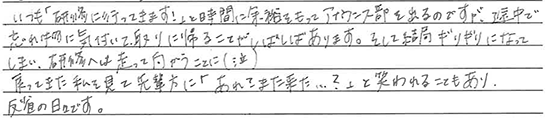 いつも「研修に行ってきます!」と時間に余裕をもってアイウンス部を出るのですが、途中で
忘れ物に気付いて取りに帰ることがしばしばあります。そして結局ギリギリになって
しまい、研修へは走って向かうことに(泣)
戻ってきた私を見て先輩方に「あれ?また来た…?」と笑われることもあり、
反省の日々です。